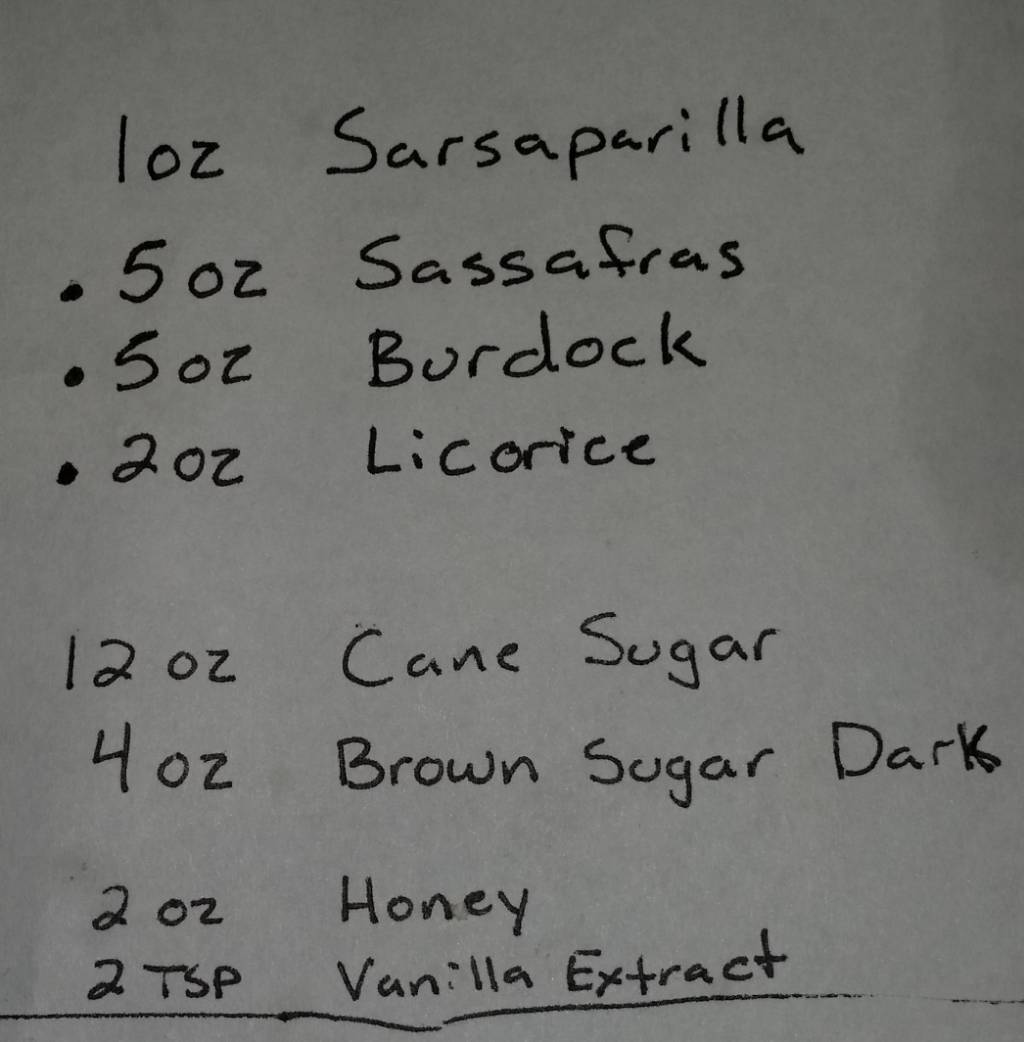 1oz Sarsaparilla
.5oz Sassafras
.5oz Burdock
.2oz Licorice
12 oz Cane Sugar
4 oz Brown Sugar Dark
2 oz Honey
2 TSP Vanilla Extract